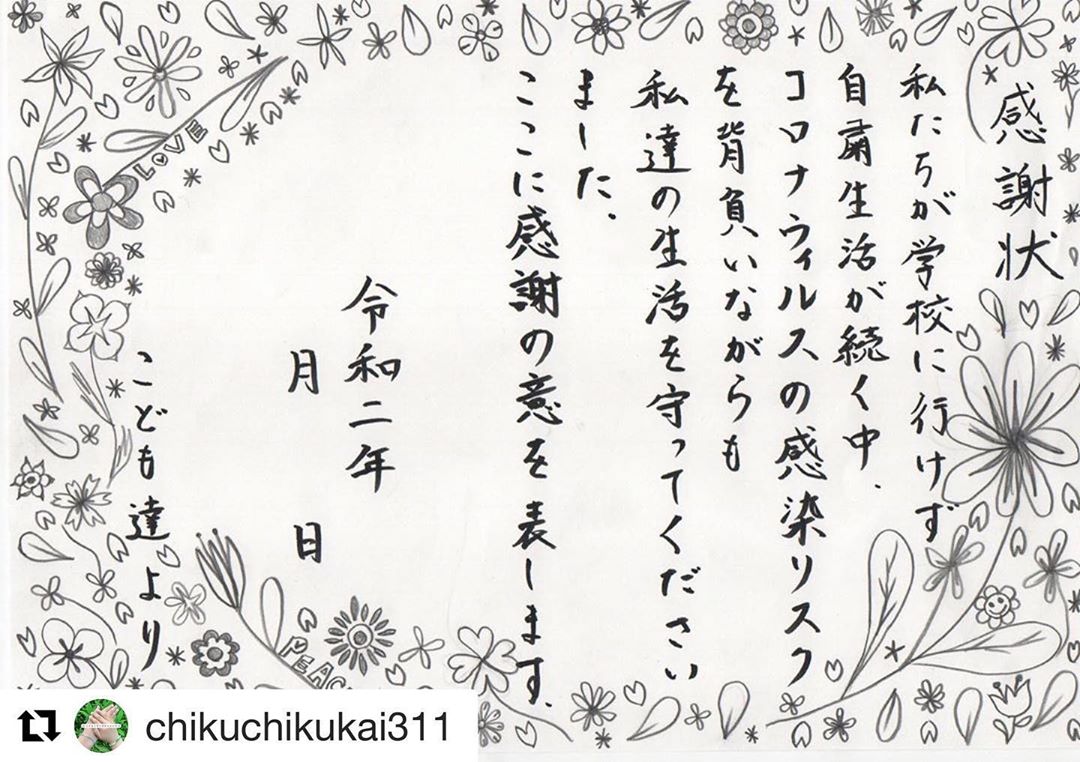 感謝状
私たちが学校に行けず
自粛生活が続く中、
コロナウィルスの感染リスク
を背負いながらも
私達の生活を守ってください
ました、
ここに感謝の意を表します、
令和二年
月 日
こども達より
LOVE
PEACE
chikuchikukai311